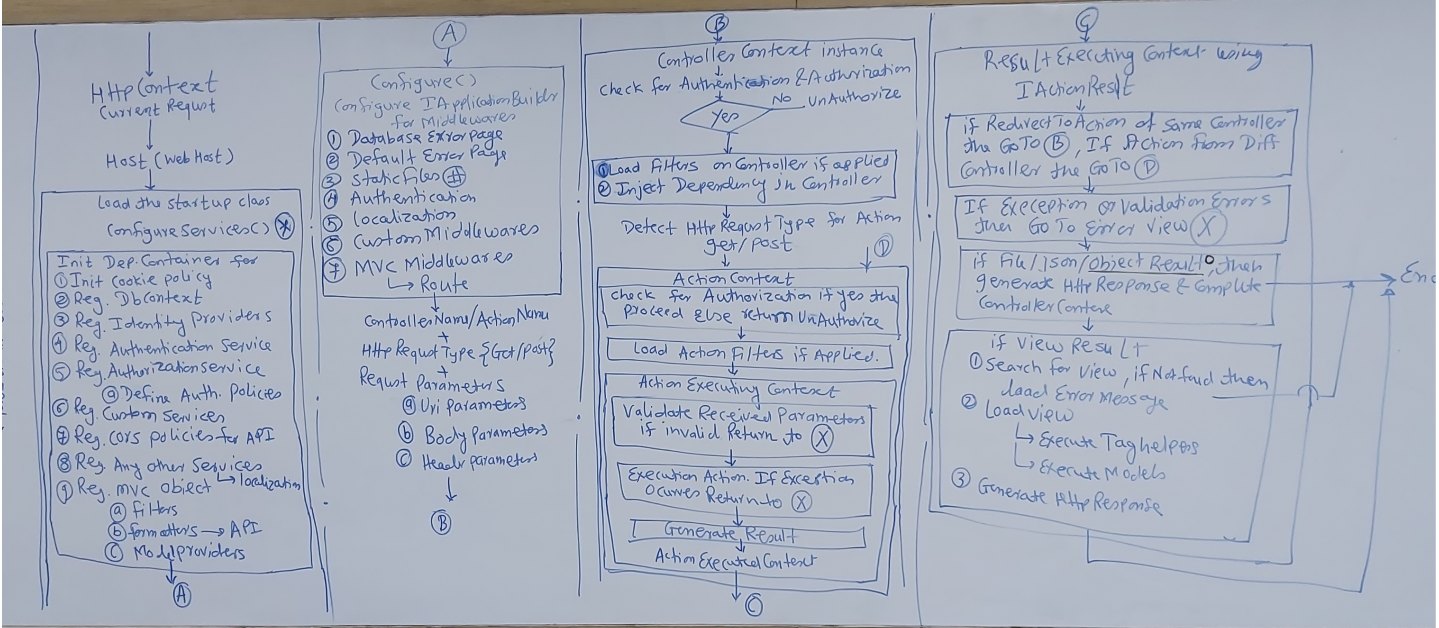 HttpContext
Current Requst
Host (WebHost)
Load the Startup class
ConfigureServices() X
Init Dep. Container for
① Init Cookie policy
② Reg. DbContext
③ Reg. Identity Providers
④ Reg. Authentication Service
⑤ Reg. Authorization service
ⓐ Define Auth. Policies
⑥ Reg. Custom Services
⑦ Reg. CORS policies for API
⑧ Reg. Any other Services
↳ localization
⑨ Reg. MVC object
ⓐ filters
ⓑ formatters → API
ⓒ Model providers
A
A
Configure()
Configure IApplicationBuilder
for Middlewares
① Database Error Page
② Default Error Page
③ Static Files #
④ Authentication
⑤ localization
⑥ Custom Middlewares
⑦ MVC Middlewares
↳ Route
ControllerName/ActionName
+
Http Requst Type {Get/post}
+
Requst Parameters
ⓐ Uri Parameters
ⓑ Body Parameters
ⓒ Header parameters
B
B
Controller Context instance
check for Authentication & Authorization
No UnAuthorize
Yes
① Load Filters on Controller if applied
② Inject Dependency in Controller
Detect Http Requst Type for Action
get/post
D
Action Context
check for Authorization if yes the
proceed Else return UnAuthorize
Load Action Filters if Applied.
Action Executing Context
Validate Received Parameters
if invalid Return to X
Execution Action. If Excestion
Ocurres Return to X
Generate Result
Action Executed Context
C
C
Result Executing Context using
IActionResult
if RedirectToAction of Same Controller
the GoTo B, If Action from Diff
Controller the GoTo D
If Exeception or Validation Errors
then Go To Error View X
if File/Json/Object Result, then
generate Http Response & Complute
Controller Contexe
End
if View Result
① Search for View, if Not foud then
load Error Message
② Load view
↳ Execute Tag helpers
↳ Execute Models
③ Generate Http Response